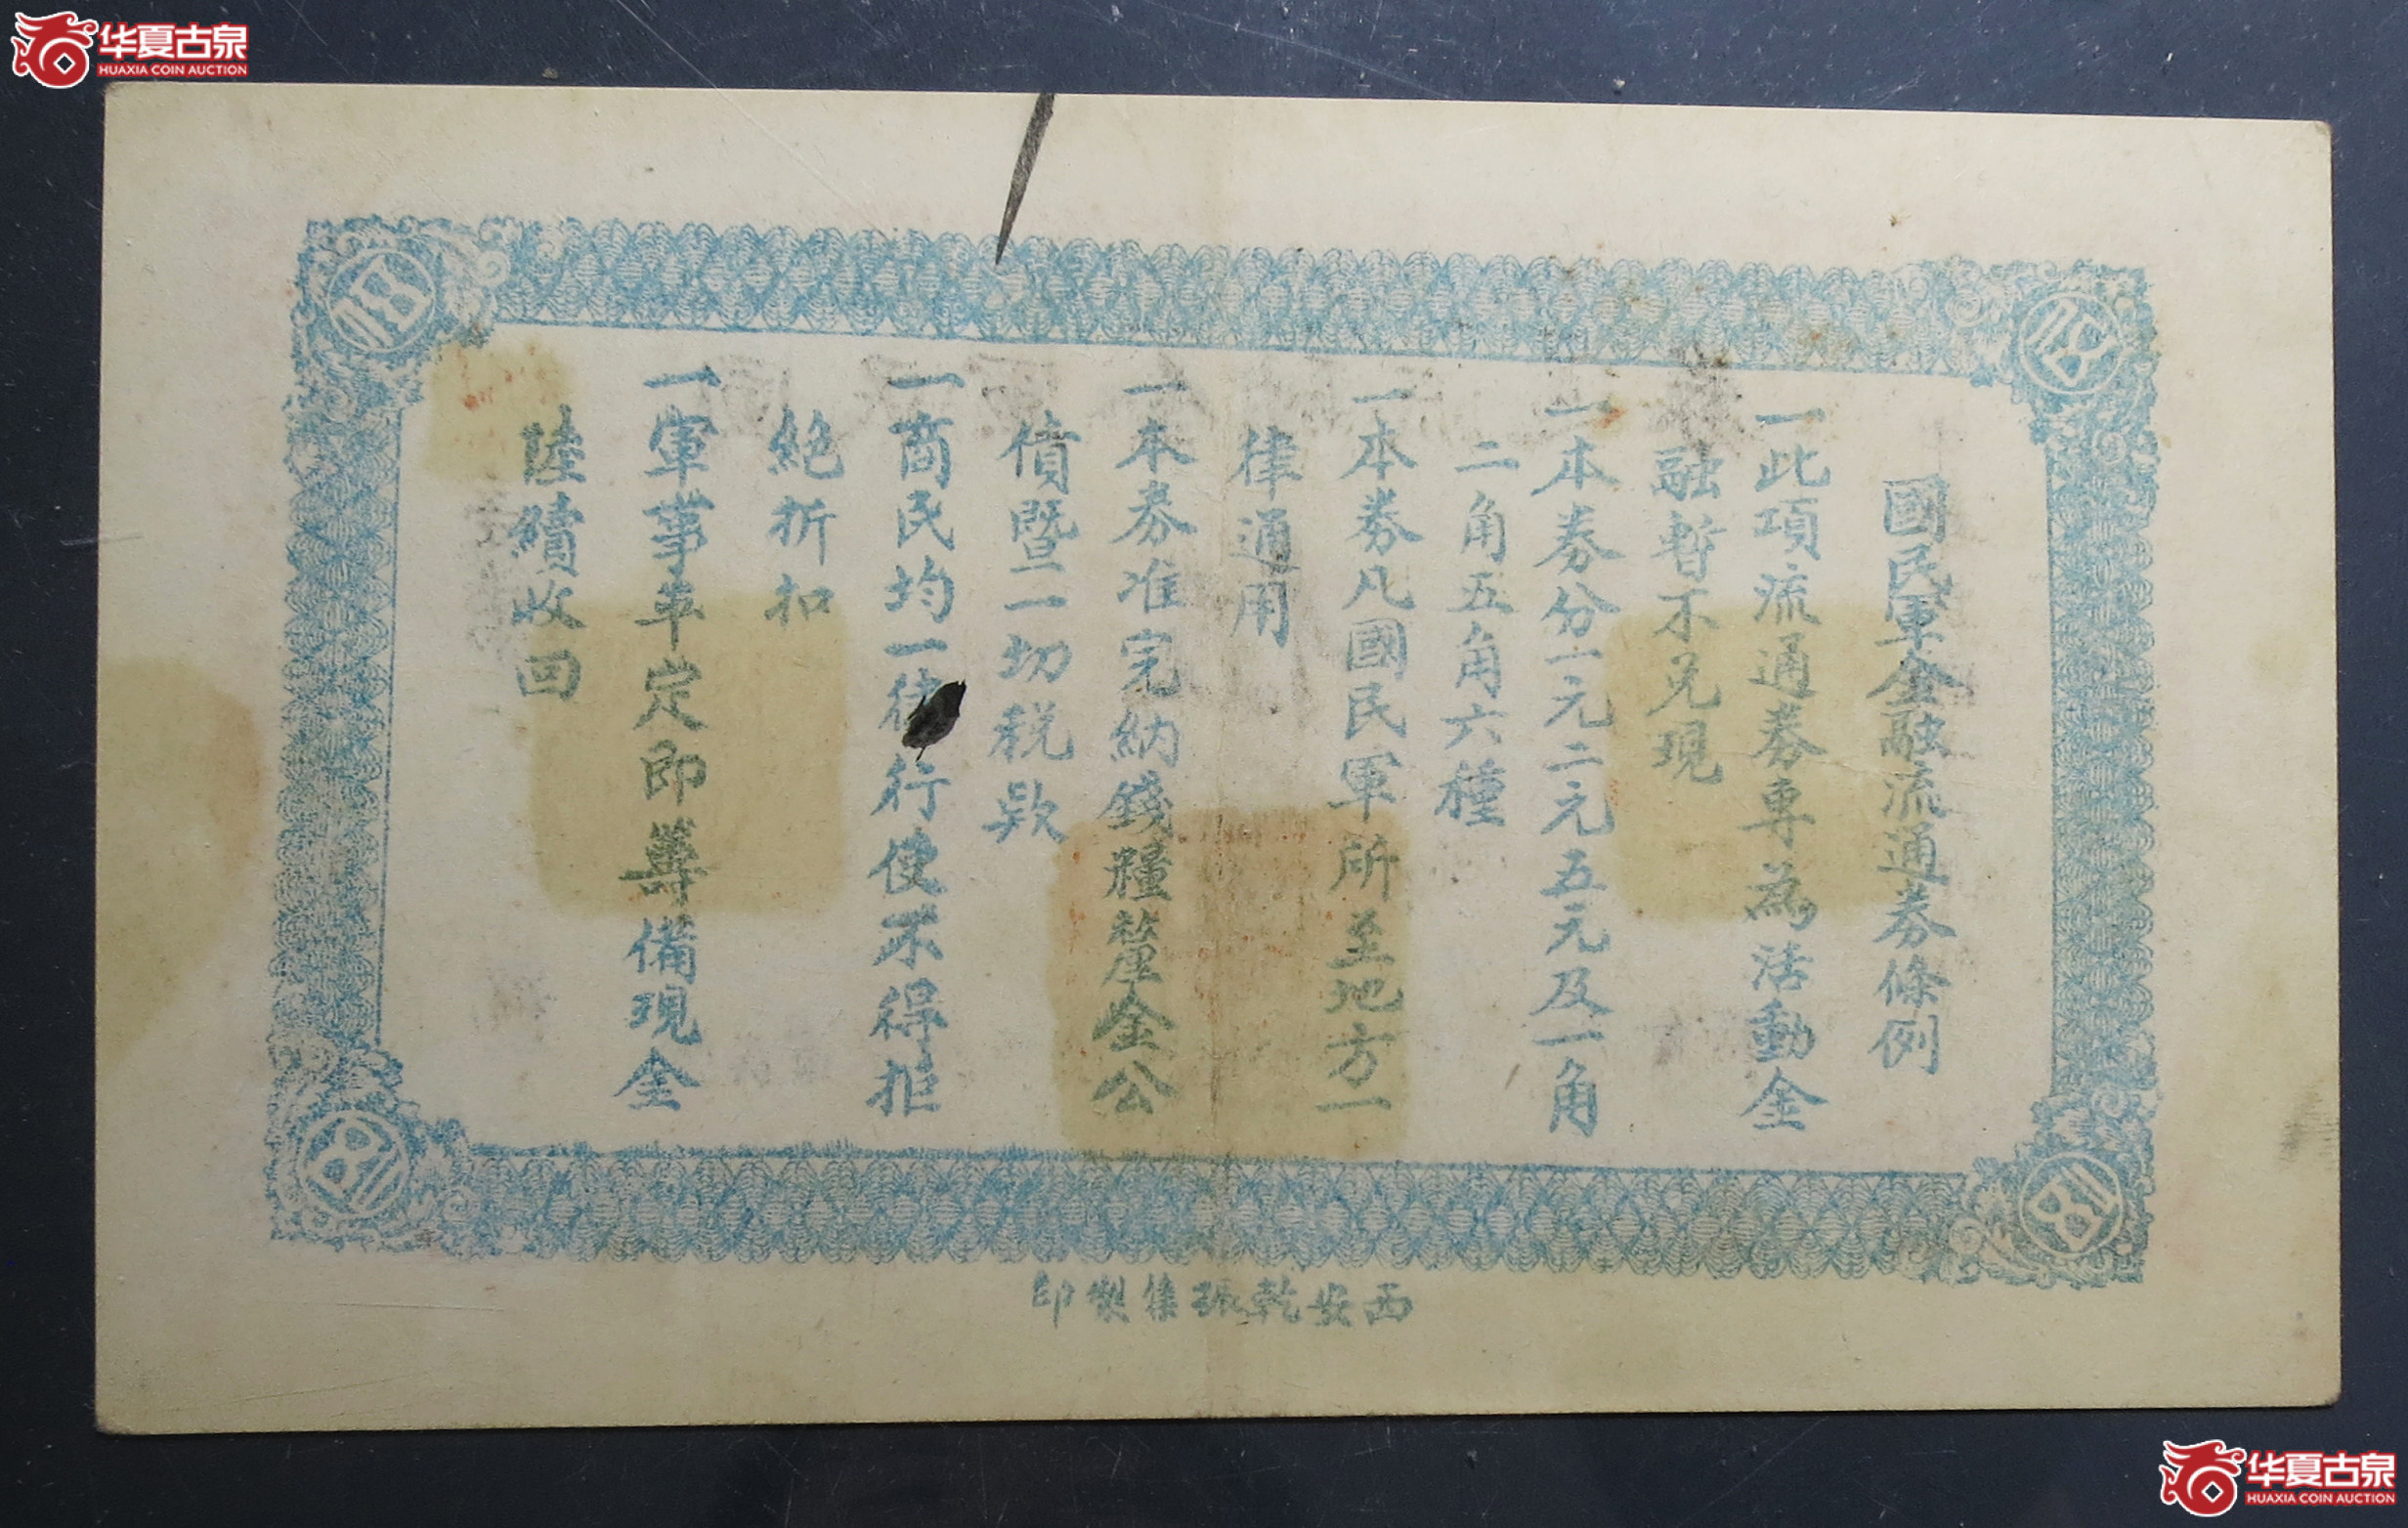 华夏古泉
HUAXIA COIN AUCTION
國民軍金融流通券條例
一此項流通券專為活動金
融暫不兑現
一本券分一元二元五元及一角
二角五角六種
一本券凡國民軍所至地方一
律通用
一本券准完納錢糧釐金公
債暨一切税欵
一商民均一律行使不得拒
絕折扣
一軍事平定即籌備現金
陸續收回
西安乾振集製印
华夏古泉
HUAXIA COIN AUCTION